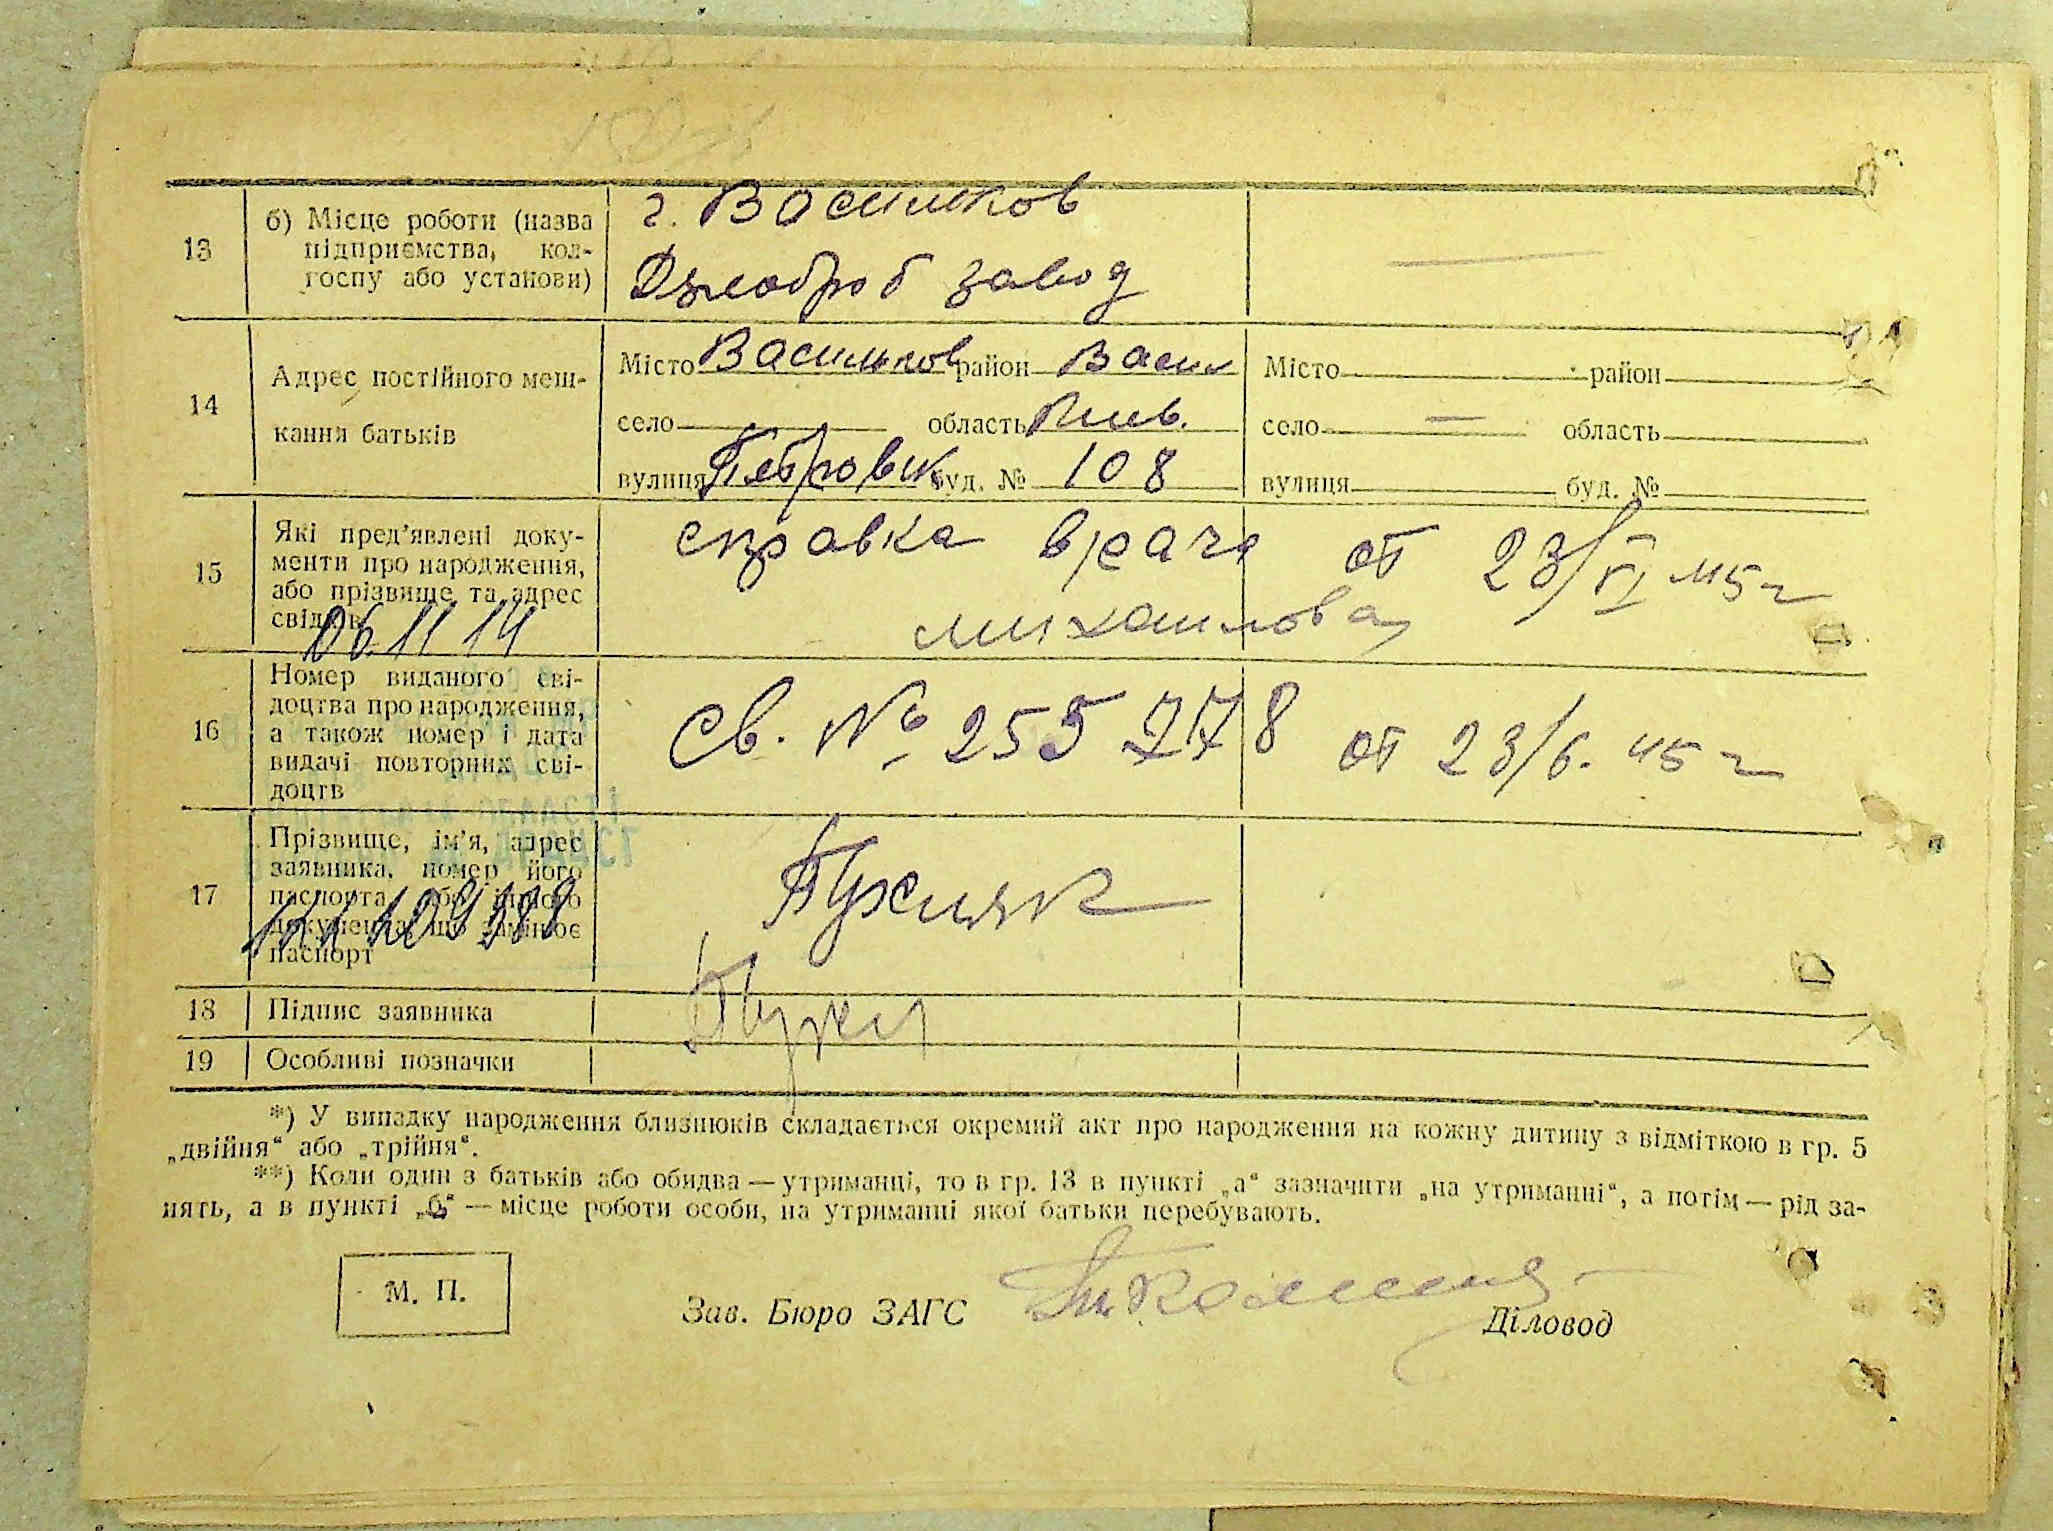 13
б) Місце роботи (назва
підприємства, кол-
госпу або установи)
г. Васильков
завод
14
Адрес постійного меш-
кання батьків
Місто Васильков район Васил
село область Киев.
вулиця Петровск буд. № 108
Місто район
село — область
вулиця буд. №
15
Які пред'явлені доку-
менти про народження,
або прізвище та адрес
свідків
06.11.14
справка врача от 23/VI 45 г
михайлова
16
Номер виданого сві-
доцтва про народження,
а також номер і дата
видачі повторних сві-
доцтв
Св. № 255778 от 23/6. 45 г
17
Прізвище, ім'я, адрес
заявника, номер його
паспорта або іншого
документа, що замінює
паспорт
Пужняк
18
Підпис заявника
19
Особливі позначки
*) У випадку народження близнюків складається окремий акт про народження на кожну дитину з відміткою в гр. 5
„двійня“ або „трійня“.
**) Коли один з батьків або обидва — утриманці, то в гр. 13 в пункті „а“ зазначити „на утриманні“, а потім — рід за-
нять, а в пункті „б“ — місце роботи особи, на утриманні якої батьки перебувають.
М. П.
Зав. Бюро ЗАГС
Діловод